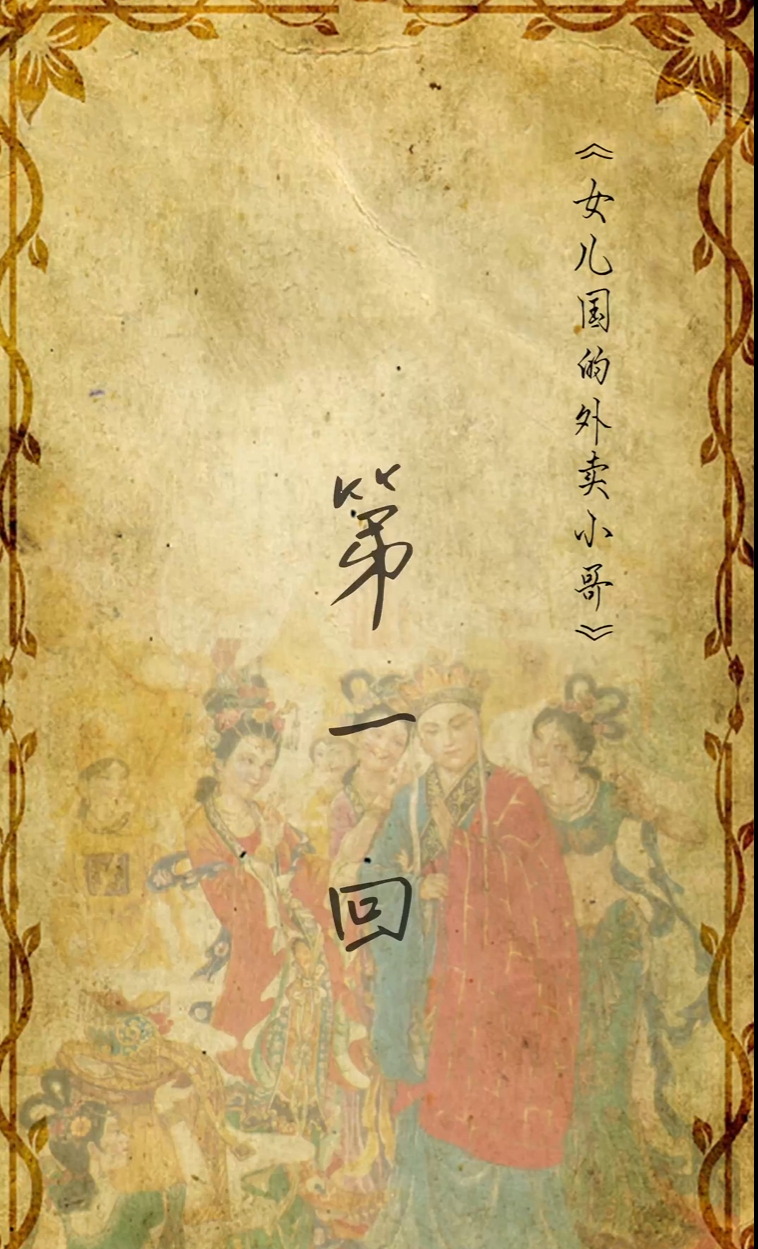 《女儿国的外卖小哥》
第一回